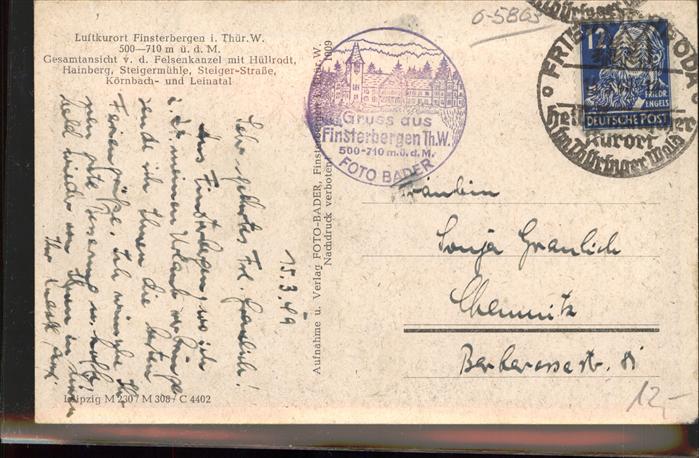 Luftkurort Finsterbergen i. Thür.W.
500—710 m ü. d. M.
Gesamtansicht v. d. Felsenkanzel mit Hüllrodt,
Hainberg, Steigermühle, Steiger-Straße,
Körnbach- und Leinatal
15.3.49
Sehr geehrtes Frl. Graulich!
Aus Finsterbergen, wo ich
meinen Urlaub verbringe
sende ich Ihnen die besten
Feriengrüße. Ich wünsche
gute
bald wieder
Ihr
Leipzig M 230 / M 308 / C 4402
Aufnahme u. Verlag FOTO-BADER, Finsterbergen, Thür. W.
Nachdruck verboten
1009
Gruss aus
Finsterbergen Th.W.
500-710 m.ü.d.M.
FOTO BADER
0-5863
12
FRIEDR.
ENGELS
DEUTSCHE POST
Kurort
im Thüringer Wald
Fräulein
Sonja Graulich
Chemnitz
Barbarossastr. 81
12,-